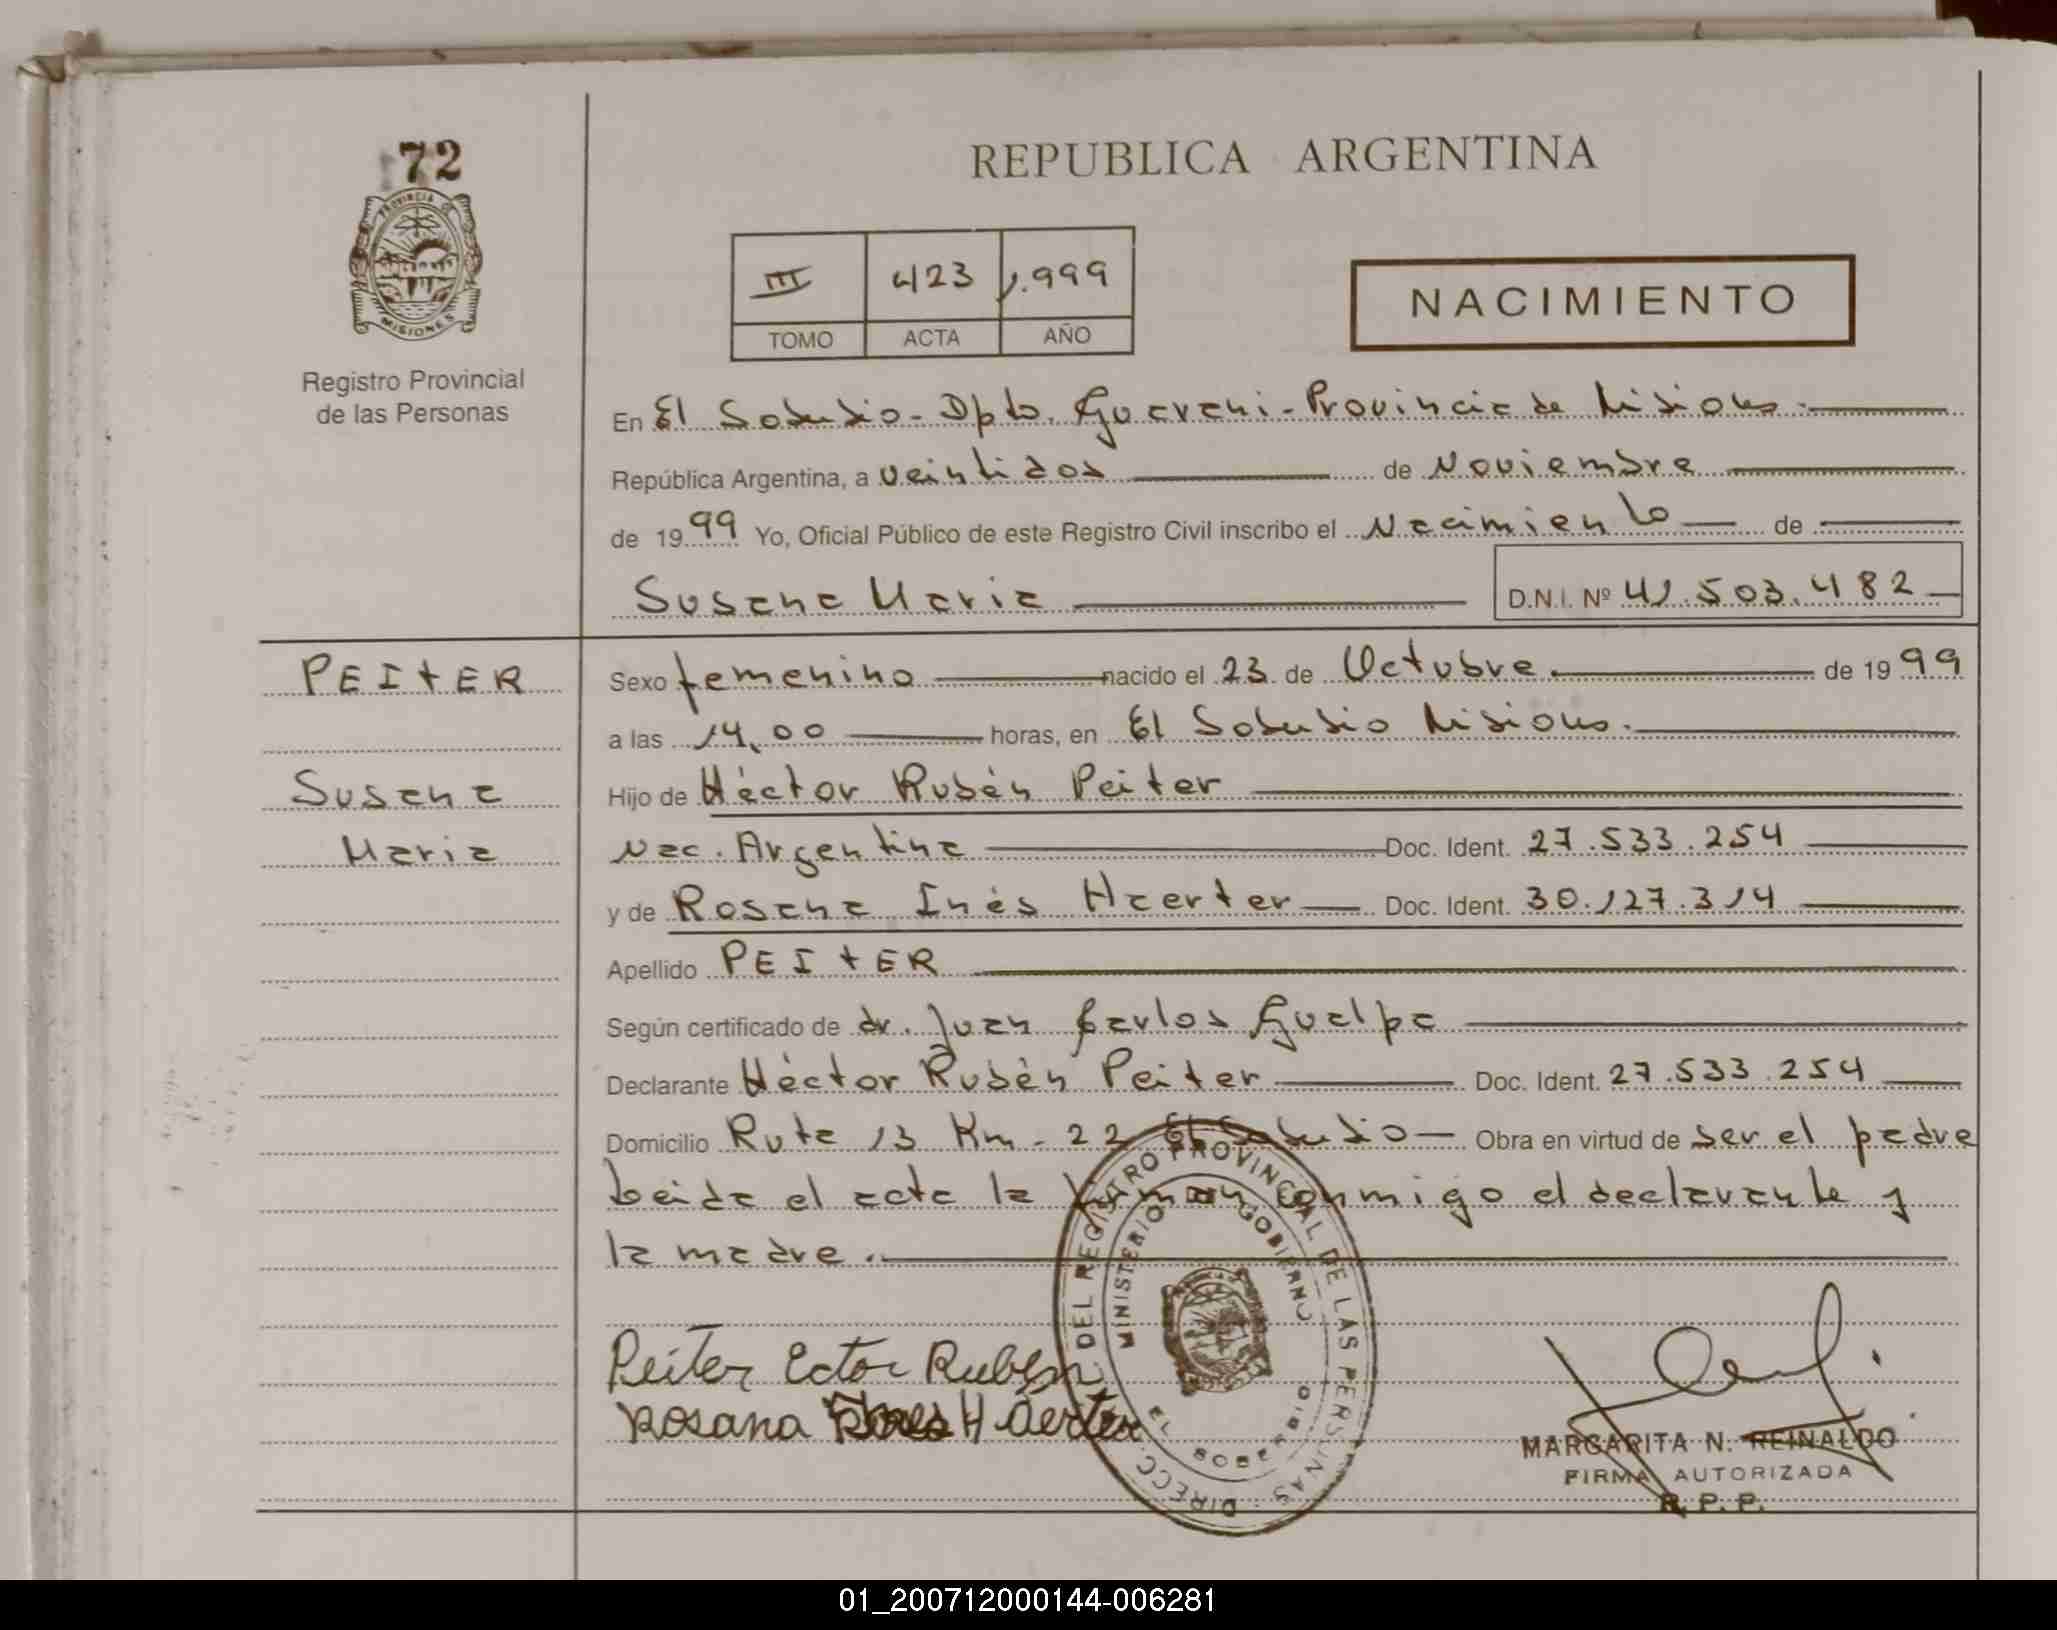 72
PROVINCIA DE
MISIONES
Registro Provincial
de las Personas
REPUBLICA ARGENTINA
III 423 1.999
TOMO ACTA AÑO
NACIMIENTO
En El Soberbio - Dpto. Guarani - Provincia de Misiones.
República Argentina, a veintidos de Noviembre
de 1999 Yo, Oficial Público de este Registro Civil inscribo el Nacimiento de
Susana Maria D.N.I. Nº 41.503.482
PEITER
Susana
Maria
Sexo femenino nacido el 23 de Octubre de 1999
a las 14,00 horas, en El Soberbio Misiones.
Hijo de Héctor Rubén Peiter
Nac. Argentina Doc. Ident. 27.533.254
y de Rosana Inés Haerter Doc. Ident. 30.127.314
Apellido PEITER
Según certificado de dr. Juan Carlos Guelpa
Declarante Héctor Rubén Peiter Doc. Ident. 27.533.254
Domicilio Ruta 13 Km - 22 El Soberbio Obra en virtud de ser el padre
Leida el acta la firman conmigo el declarante y
la madre.
Peiter Ector Ruben
Rosana Ines Haerter
DIRECC. DEL REGISTRO PROVINCIAL DE LAS PERSONAS
MINISTERIO DE GOBIERNO
EL SOBERBIO
MARGARITA N. REINALDO
FIRMA AUTORIZADA
R. P. P.
01_200712000144-006281